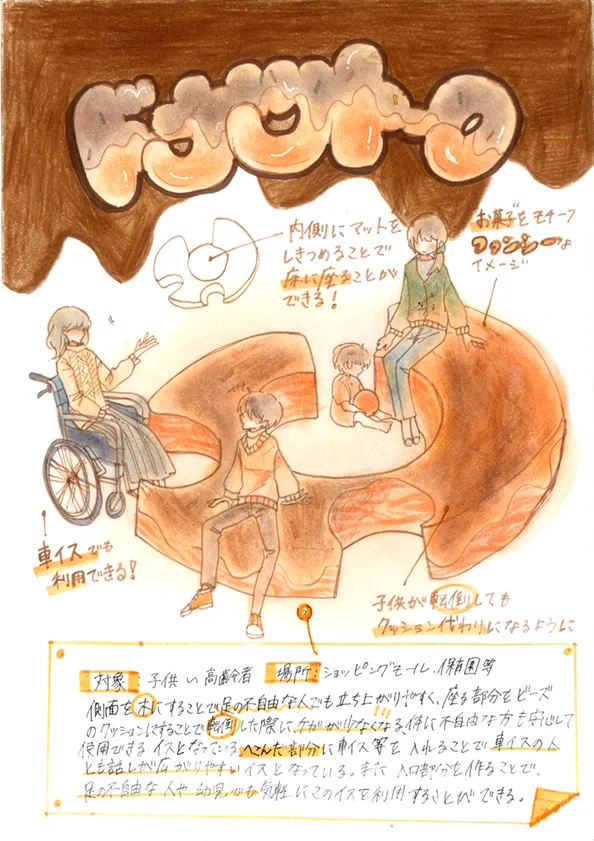 内側にマットを
しきつめることで
床に座ることが
できる!
お菓子をモチーフ
ファンシーな
イメージ
車イスでも
利用できる!
子供が転倒しても
クッション代わりになるように
対象 子供 〜 高齢者 場所:ショッピングモール、保育園等
側面を木にすることで足の不自由な人でも立ち上がりやすく、座る部分をビーズ
のクッションにすることで転倒した際にケガが少なくなる。体に不自由な方も安心して
使用できるイスとなっている。へこんだ部分に車イス等を入れることで車イスの人
とも話しが広がりやすいイスとなっている。また入口部分を作ることで、
足の不自由な人や幼児 も気軽にこのイスを利用することができる。